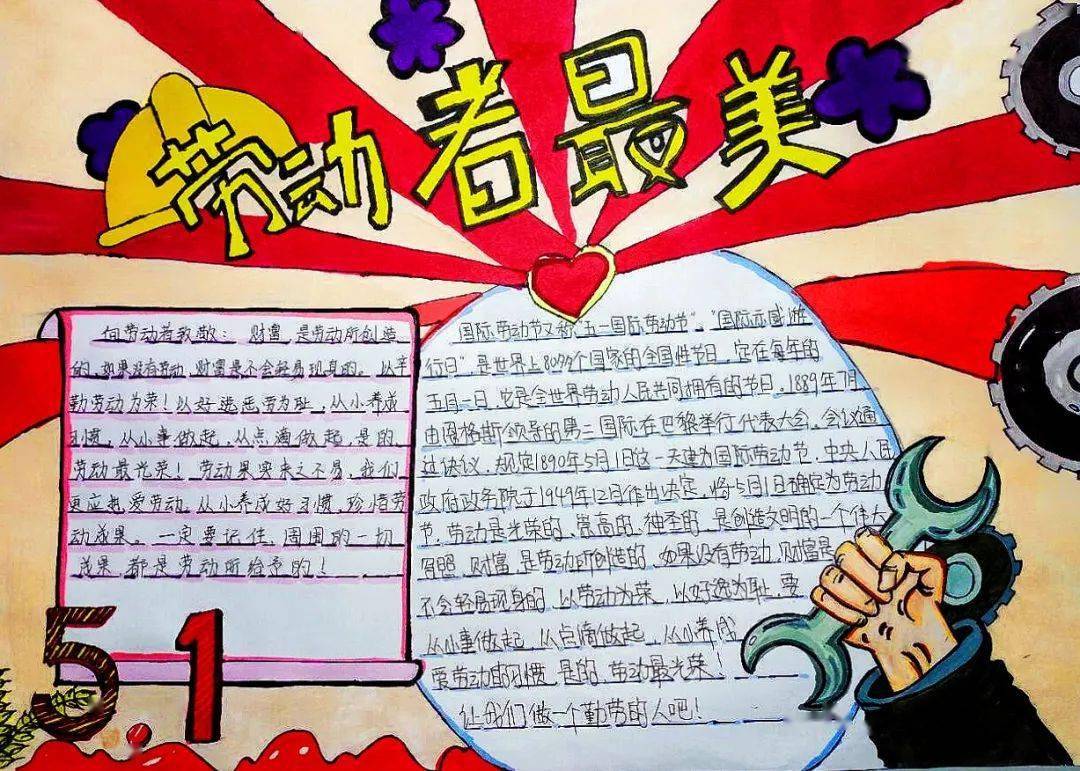 劳动者最美
向劳动者致敬： 财富，是劳动所创造
的，如果没有劳动，财富是不会轻易现身的。以辛
勤劳动为荣！以好逸恶劳为耻，从小养成
习惯，从小事做起，从点滴做起，是的，
劳动最光荣！劳动果实来之不易，我们
更应热爱劳动，从小养成好习惯，珍惜劳
动成果。一定要记住，周围的一切
成果，都是劳动所给予的！
5.1
国际劳动节又称"五一国际劳动节"，"国际示威游
行日"，是世界上80多个国家的全国性节日，定在每年的
五月一日，它是全世界劳动人民共同拥有的节日，1889年7月，
由恩格斯领导的第二国际在巴黎举行代表大会。会议通
过决议，规定1890年5月1日这一天建为国际劳动节，中央人民
政府政务院于1949年12月作出决定，将5月1日确定为劳动
节，劳动是光荣的、崇高的、神圣的，是创造文明的一个伟大
财富，是劳动所创造的，如果没有劳动，财富是
不会轻易现身的，以劳动为荣，以好逸为耻，要
从小事做起，从点滴做起，从小养成
爱劳动的习惯，是的，劳动最光荣！
让我们做一个勤劳的人吧！